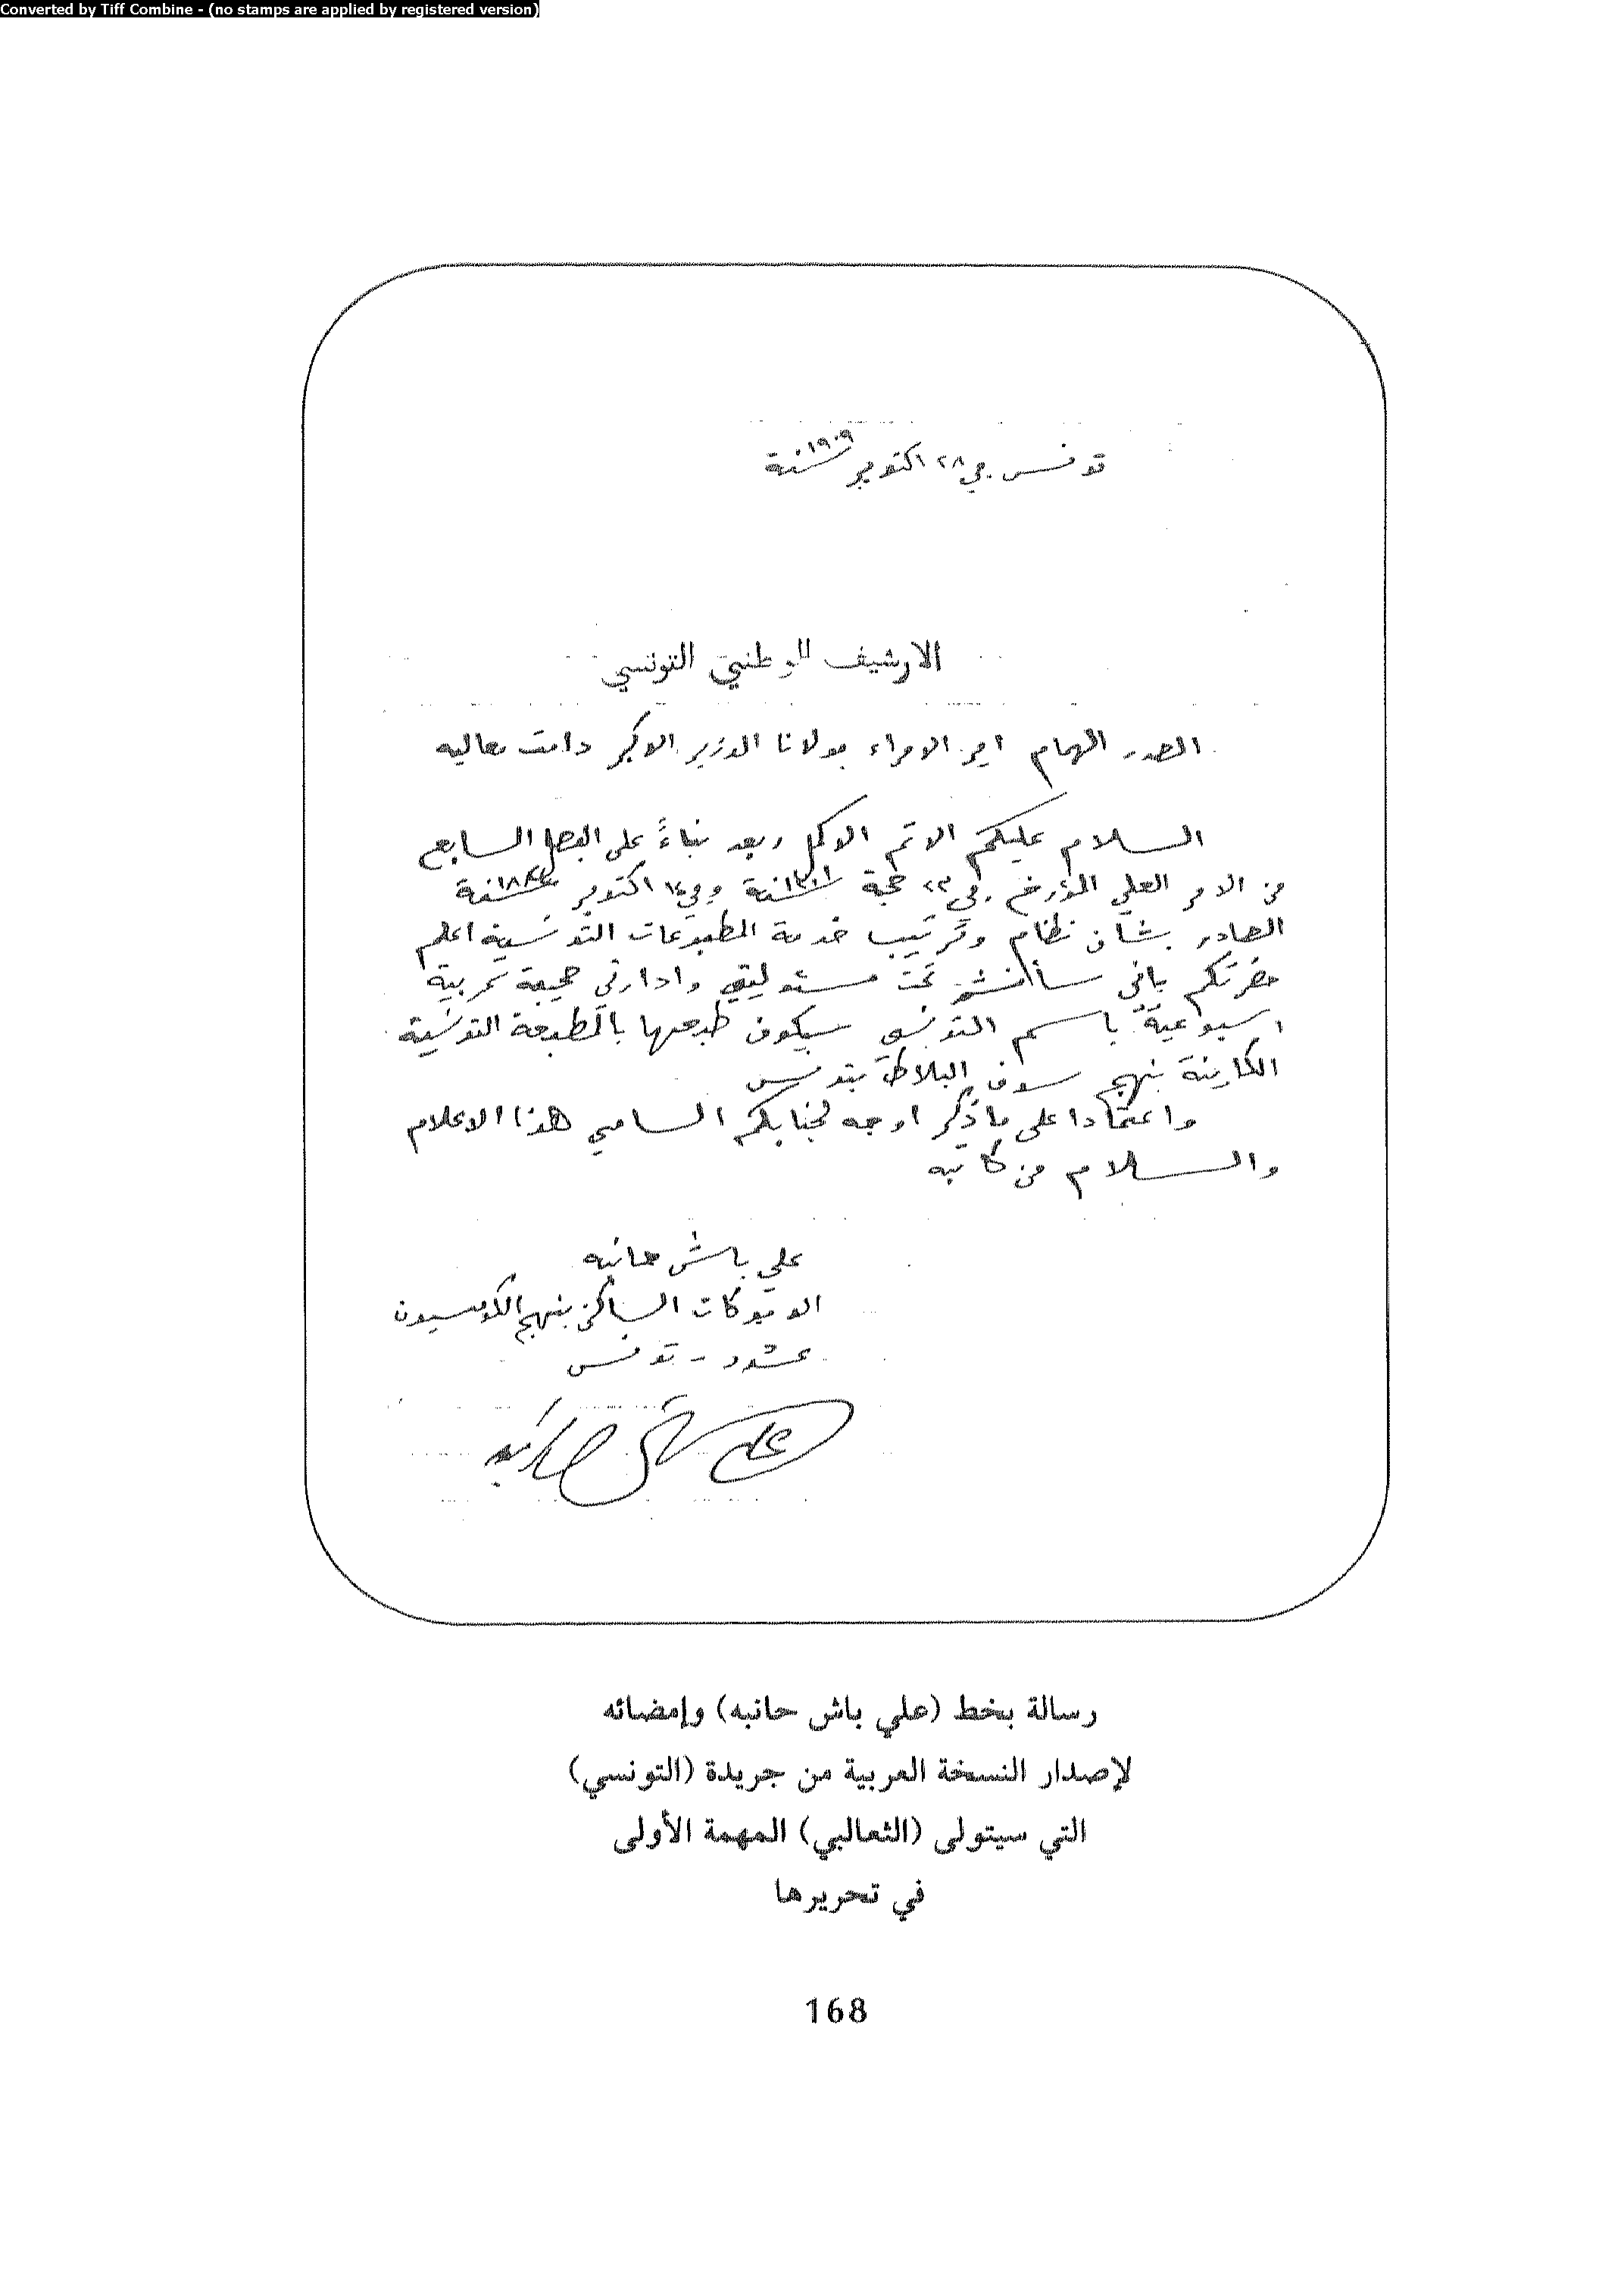 Converted by Tiff Combine - (no stamps are applied by registered version)
تونس في ٢٨ اكتوبر سنة ١٩٠٩
الارشيف الوطني التونسي
الصدر الهمام امير الامراء مولانا الوزير الاكبر دامت معاليه
السلام عليكم الاتم الاكمل وبعد بناءً على الفصل السابع
من الامر العلي المؤرخ في ٢٣ حجة سنة ١٣٠١ وفي ١٤ اكتوبر سنة ١٨٨٤
الصادر بشان نظام وترتيب خدمة المطبوعات التونسية اعلم
حضرتكم باني سأنشر تحت مسئوليتي وادارتي صحيفة عربية
اسبوعية باسم التونسي سيكون طبعها بالمطبعة التونسية
الكاينة بنهج سوق البلاط بتونس
واعتمادا على ما ذكر اوجه لجنابكم السامي هذا الاعلام
والسلام من كاتبه
علي باش حانبه
الافوكات الساكن بنهج الكومسيون
تونس
علي باش حانبه
رسالة بخط (علي باش حانبه) وإمضائه
لإصدار النسخة العربية من جريدة (التونسي)
التي سيتولى (الثعالبي) المهمة الأولى
في تحريرها
168